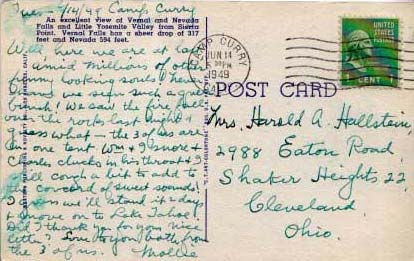 Tue - 6/14/49 Camp Curry
An excellent view of Vernal and Nevada
Falls and Little Yosemite Valley from Sierra
Point. Vernal Falls has a sheer drop of 317
feet and Nevada 594 feet.
Well here we are at last
amid millions of other
funny looking souls! heaven
we seen such a
bunch! We saw the fire fall
over the rocks last night &
guess what - the 3 of us are
in one tent Wm & I snore &
Charles clucks in his throat & I
cough a bit to add to
the concord of sweet sounds!
we'll stand it 2 days
& move on to Lake Tahoe.
Did I thank you for your nice
letter? Love to you both from
the 3 of us. Mollie
CAMP CURRY
JUN 14
PM
1949
UNITED STATES
POSTAGE
1 CENT 1
POST CARD
Mrs. Harold A. Hallstein,
2988 Eaton Road,
Shaker Heights 22,
Cleveland
Ohio.